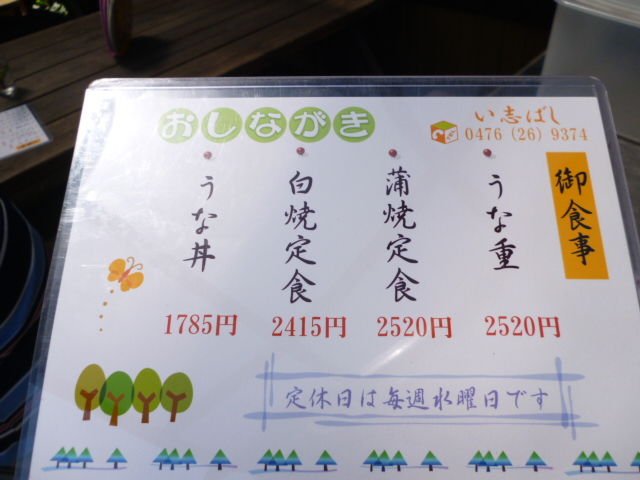 おしながき
い志ばし
0476 (26) 9374
御食事
うな重
2520円
蒲焼定食
2520円
白焼定食
2415円
うな丼
1785円
定休日は毎週水曜日です